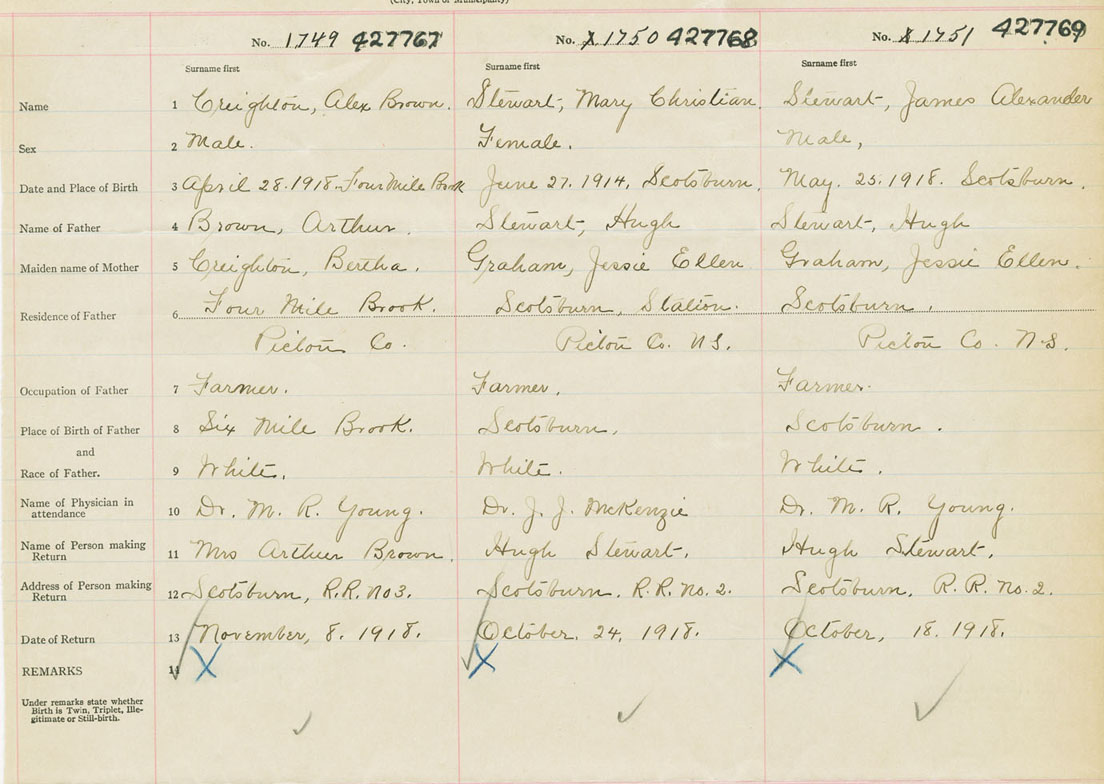 (City, Town or Municipality)
No. 1749 427767 No. X 1750 427768 No. X 1751 427769
Surname first Surname first Surname first
Name 1 Creighton, Alex Brown. Stewart, Mary Christian. Stewart, James Alexander
Sex 2 Male. Female. Male,
Date and Place of Birth 3 April 28. 1918. Four Mile Brook June 27. 1914, Scotsburn. May. 25. 1918. Scotsburn.
Name of Father 4 Brown, Arthur. Stewart, Hugh Stewart, Hugh
Maiden name of Mother 5 Creighton, Bertha. Graham, Jessie Ellen Graham, Jessie Ellen.
Residence of Father 6 Four Mile Brook. Scotsburn, Station. Scotsburn.
Pictou Co. Pictou Co. N.S. Pictou Co. N.S.
Occupation of Father 7 Farmer. Farmer. Farmer.
Place of Birth of Father 8 Six Mile Brook. Scotsburn. Scotsburn.
and
Race of Father. 9 White. White. White.
Name of Physician in
attendance 10 Dr. M. R. Young. Dr. J. J. McKenzie Dr. M. R. Young.
Name of Person making
Return 11 Mrs Arthur Brown. Hugh Stewart. Hugh Stewart.
Address of Person making
Return 12 Scotsburn, R.R. No 3. Scotsburn. R.R. No. 2. Scotsburn. R.R. No. 2.
Date of Return 13 November, 8. 1918. October. 24. 1918. October, 18. 1918.
REMARKS 14 X X X
Under remarks state whether
Birth is Twin, Triplet, Ille-
gitimate or Still-birth.